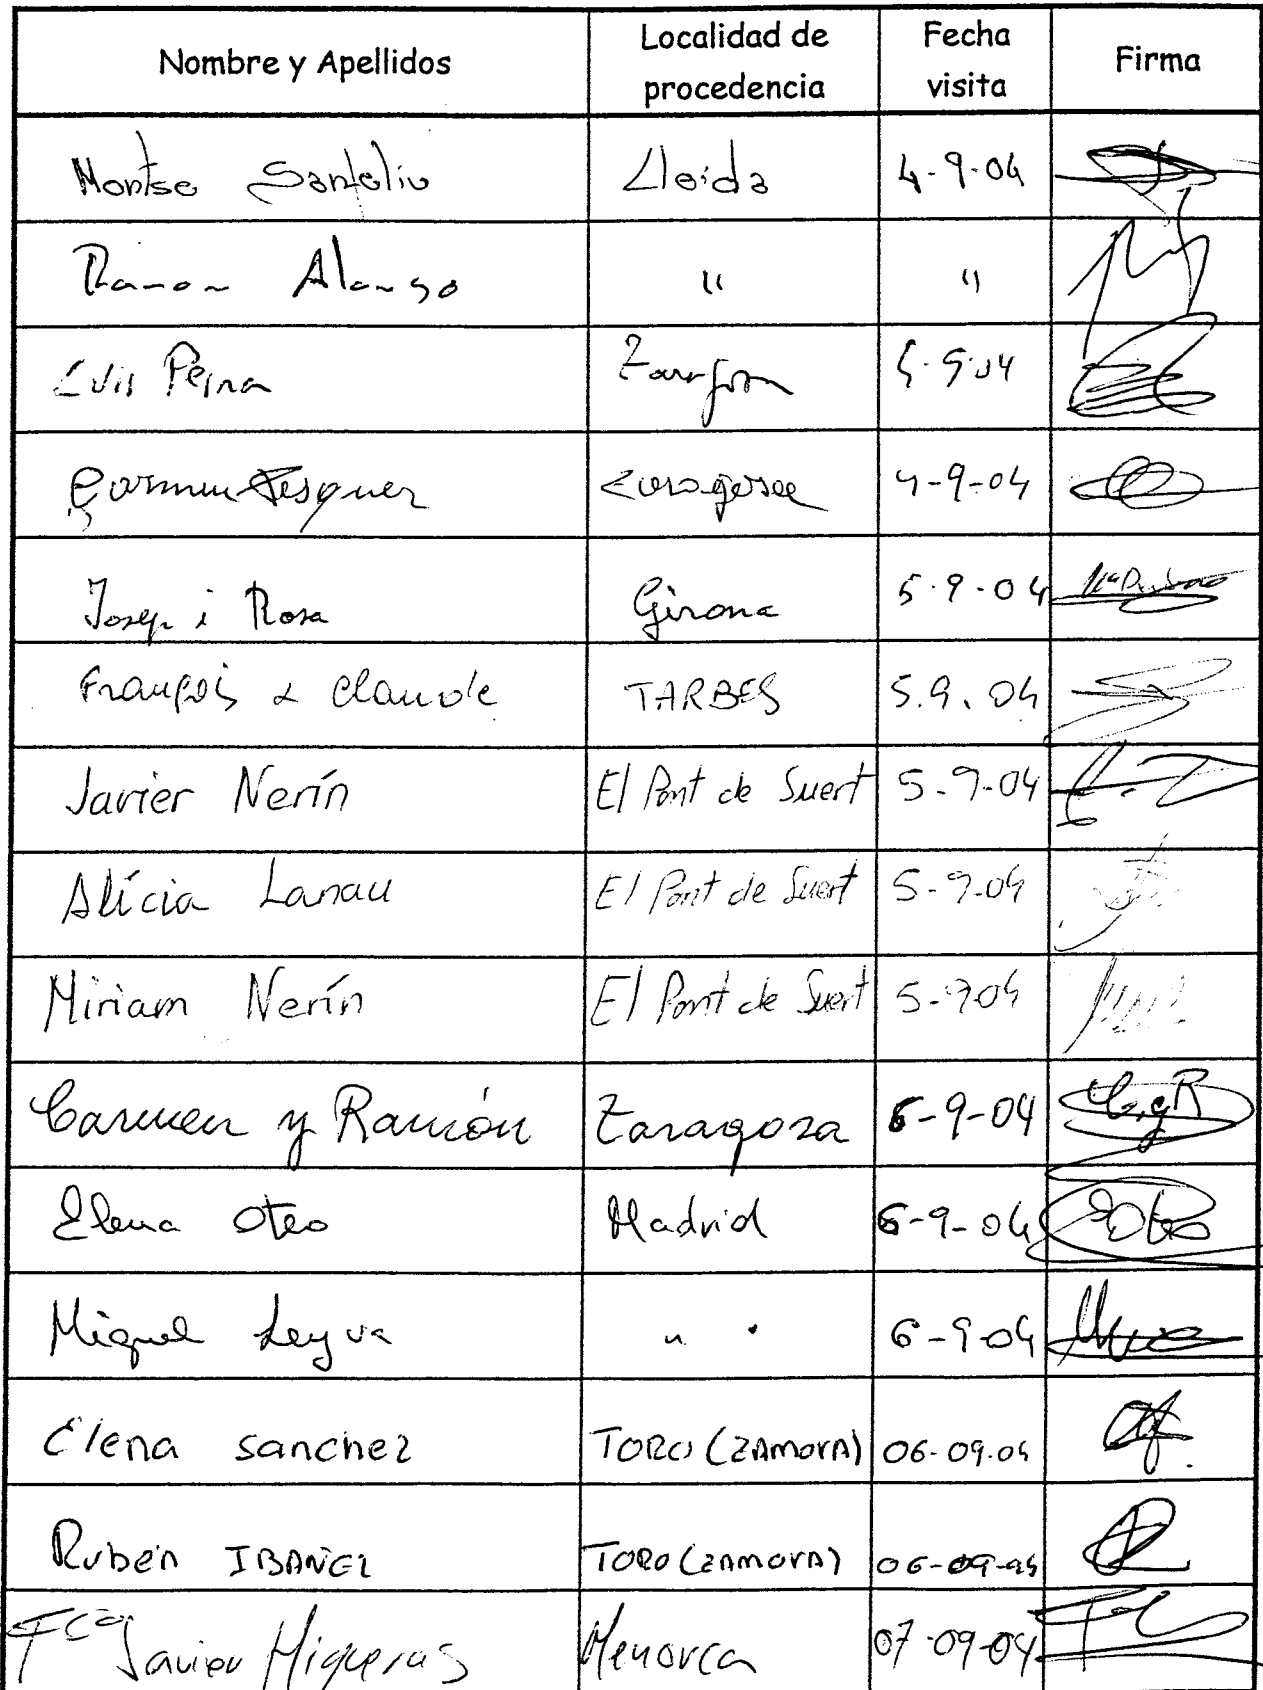 Nombre y Apellidos Localidad de procedencia Fecha visita Firma
Montse Santoliu Lleida 4-9-04
Ramon Alonso " "
Luis Peina Zaragoza 4-9-04
Carmen Fesquer Zaragoza 4-9-04
Josep i Rosa Girona 5-9-04
François & Claude TARBES 5.9.04
Javier Nerín El Pont de Suert 5-9-04
Alícia Lanau El Pont de Suert 5-9-04
Miriam Nerín El Pont de Suert 5-904
Carmen y Ramón Zaragoza 6-9-04 C.y R
Elena Oteo Madrid 6-9-04 EOteo
Miguel Leyva " 6-9-04
Elena Sanchez TORO (ZAMORA) 06-09.04
Rubén IBAÑEZ TORO (ZAMORA) 06-09-04
Fco Javier Higueras Menorca 07-09-04